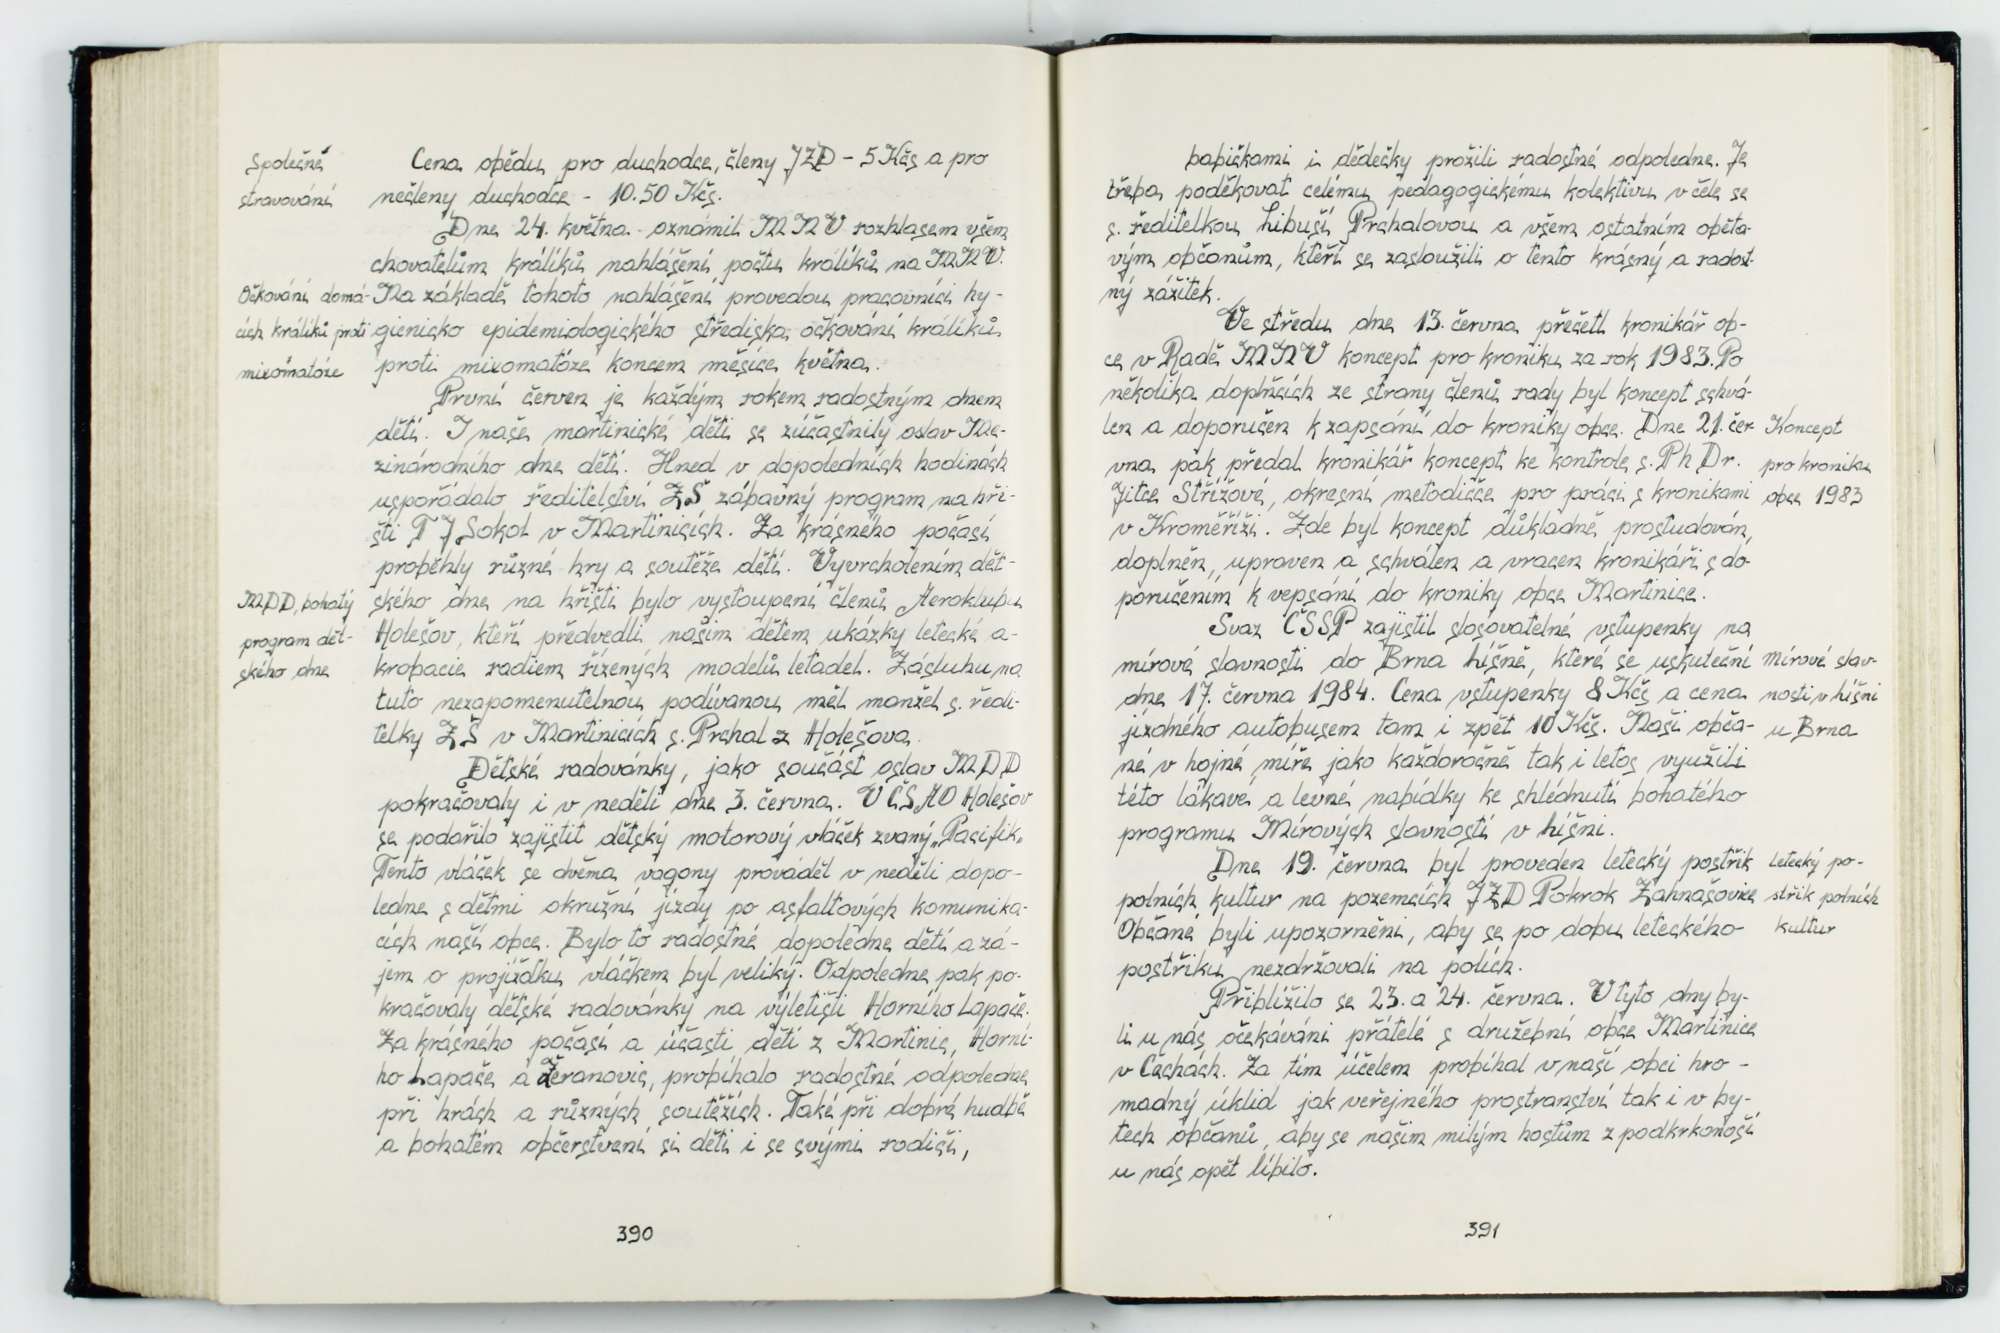 Společné
stravování
Cena obědu pro duchodce, členy JZD - 5 Kčs a pro
nečleny duchodce - 10.50 Kčs.
Dne 24. května oznámil MNV rozhlasem všem
chovatelům králíků nahlášení počtu králíků na MNV.
Očkování domá-
cích králíků proti
mixomatóze
Na základě tohoto nahlášení provedou pracovníci hy-
gienicko epidemiologického střediska očkování králíků
proti mixomatóze koncem měsíce května.
První červen je každým rokem radostným dnem
dětí. I naše martinické děti se zúčastnily oslav Me-
zinárodního dne dětí. Hned v dopoledních hodinách
uspořádalo ředitelství ZŠ zábavný program na hři-
šti TJ Sokol v Martinicích. Za krásného počasí
proběhly různé hry a soutěže dětí. Vyvrcholením dět-
MDD, bohatý
program dět-
ského dne
ského dne na hřišti bylo vystoupení členů Aeroklubu
Holešov, kteří předvedli našim dětem ukázky letecké a-
krobacie radiem řízených modelů letadel. Zásluhu na
tuto nezapomenutelnou podívanou měl manžel s. ředi-
telky ZŠ v Martinicích s. Prchal z Holešova.
Dětské radovánky, jako součást oslav MDD
pokračovaly i v neděli dne 3. června. V ČSAO Holešov
se podařilo zajistit dětský motorový vláček zvaný „Pacifik„
Tento vláček se dvěma vagony prováděl v neděli dopo-
ledne s dětmi okružní jízdy po asfaltových komunika-
cích naší obce. Bylo to radostné dopoledne dětí a zá-
jem o projížďku vláčkem byl veliký. Odpoledne pak po-
kračovaly dětské radovánky na výletišti Horního Lapače.
Za krásného počasí a účasti dětí z Martinic, Horní-
ho Lapače a Žeranovic, probíhalo radostné odpoledne
při hrách a různých soutěžích. Také při dobré hudbě
a bohatém občerstvení si děti i se svými rodiči,
390
babičkami i dědečky prožili radostné odpoledne. Je
třeba poděkovat celému pedagogickému kolektivu v čele se
s. ředitelkou Libuší Prchalovou a všem ostatním oběta-
vým občanům, kteří se zasloužili o tento krásný a radost-
ný zážitek.
Ve středu dne 13. června přečetl kronikář ob-
ce v Radě MNV koncept pro kroniku za rok 1983. Po
několika doplňcích ze strany členů rady byl koncept schvá-
len a doporučen k zapsání do kroniky obce. Dne 21. čer
vna pak předal kronikář koncept ke kontrole s. PhDr.
Jitce Střížové, okresní metodičce pro práci s kronikami
v Kroměříži. Zde byl koncept důkladně prostudován,
doplněn, upraven a schválen a vracen kronikáři s do
poručením k vepsání do kroniky obce Martinice.
Koncept
pro kroniku
obce 1983
Svaz ČSSP zajistil slosovatelné vstupenky na
mírové slavnosti do Brna Líšně, které se uskuteční
dne 17. června 1984. Cena vstupenky 8 Kčs a cena
jízdného autobusem tam i zpět 10 Kčs. Naši obča-
né v hojné míře jako každoročně tak i letos využili
této lákavé a levné nabídky ke shlédnutí bohatého
programu Mírových slavností v Líšni.
Mírové slav-
nosti v Líšni
u Brna
Dne 19. června byl proveden letecký postřik
polních kultur na pozemcích JZD Pokrok Zahnašovice
Občané byli upozorněni, aby se po dobu leteckého
postřiku nezdržovali na polích.
letecký po-
střik polních
kultur
Přiblížilo se 23. a 24. června. V tyto dny by-
li u nás očekáváni přátelé s družební obce Martinice
v Čechách. Za tím účelem probíhal v naší obci hro-
madný úklid jak veřejného prostranství tak i v by-
tech občanů, aby se našim milým hostům z podkrkonoší
u nás opět líbilo.
391